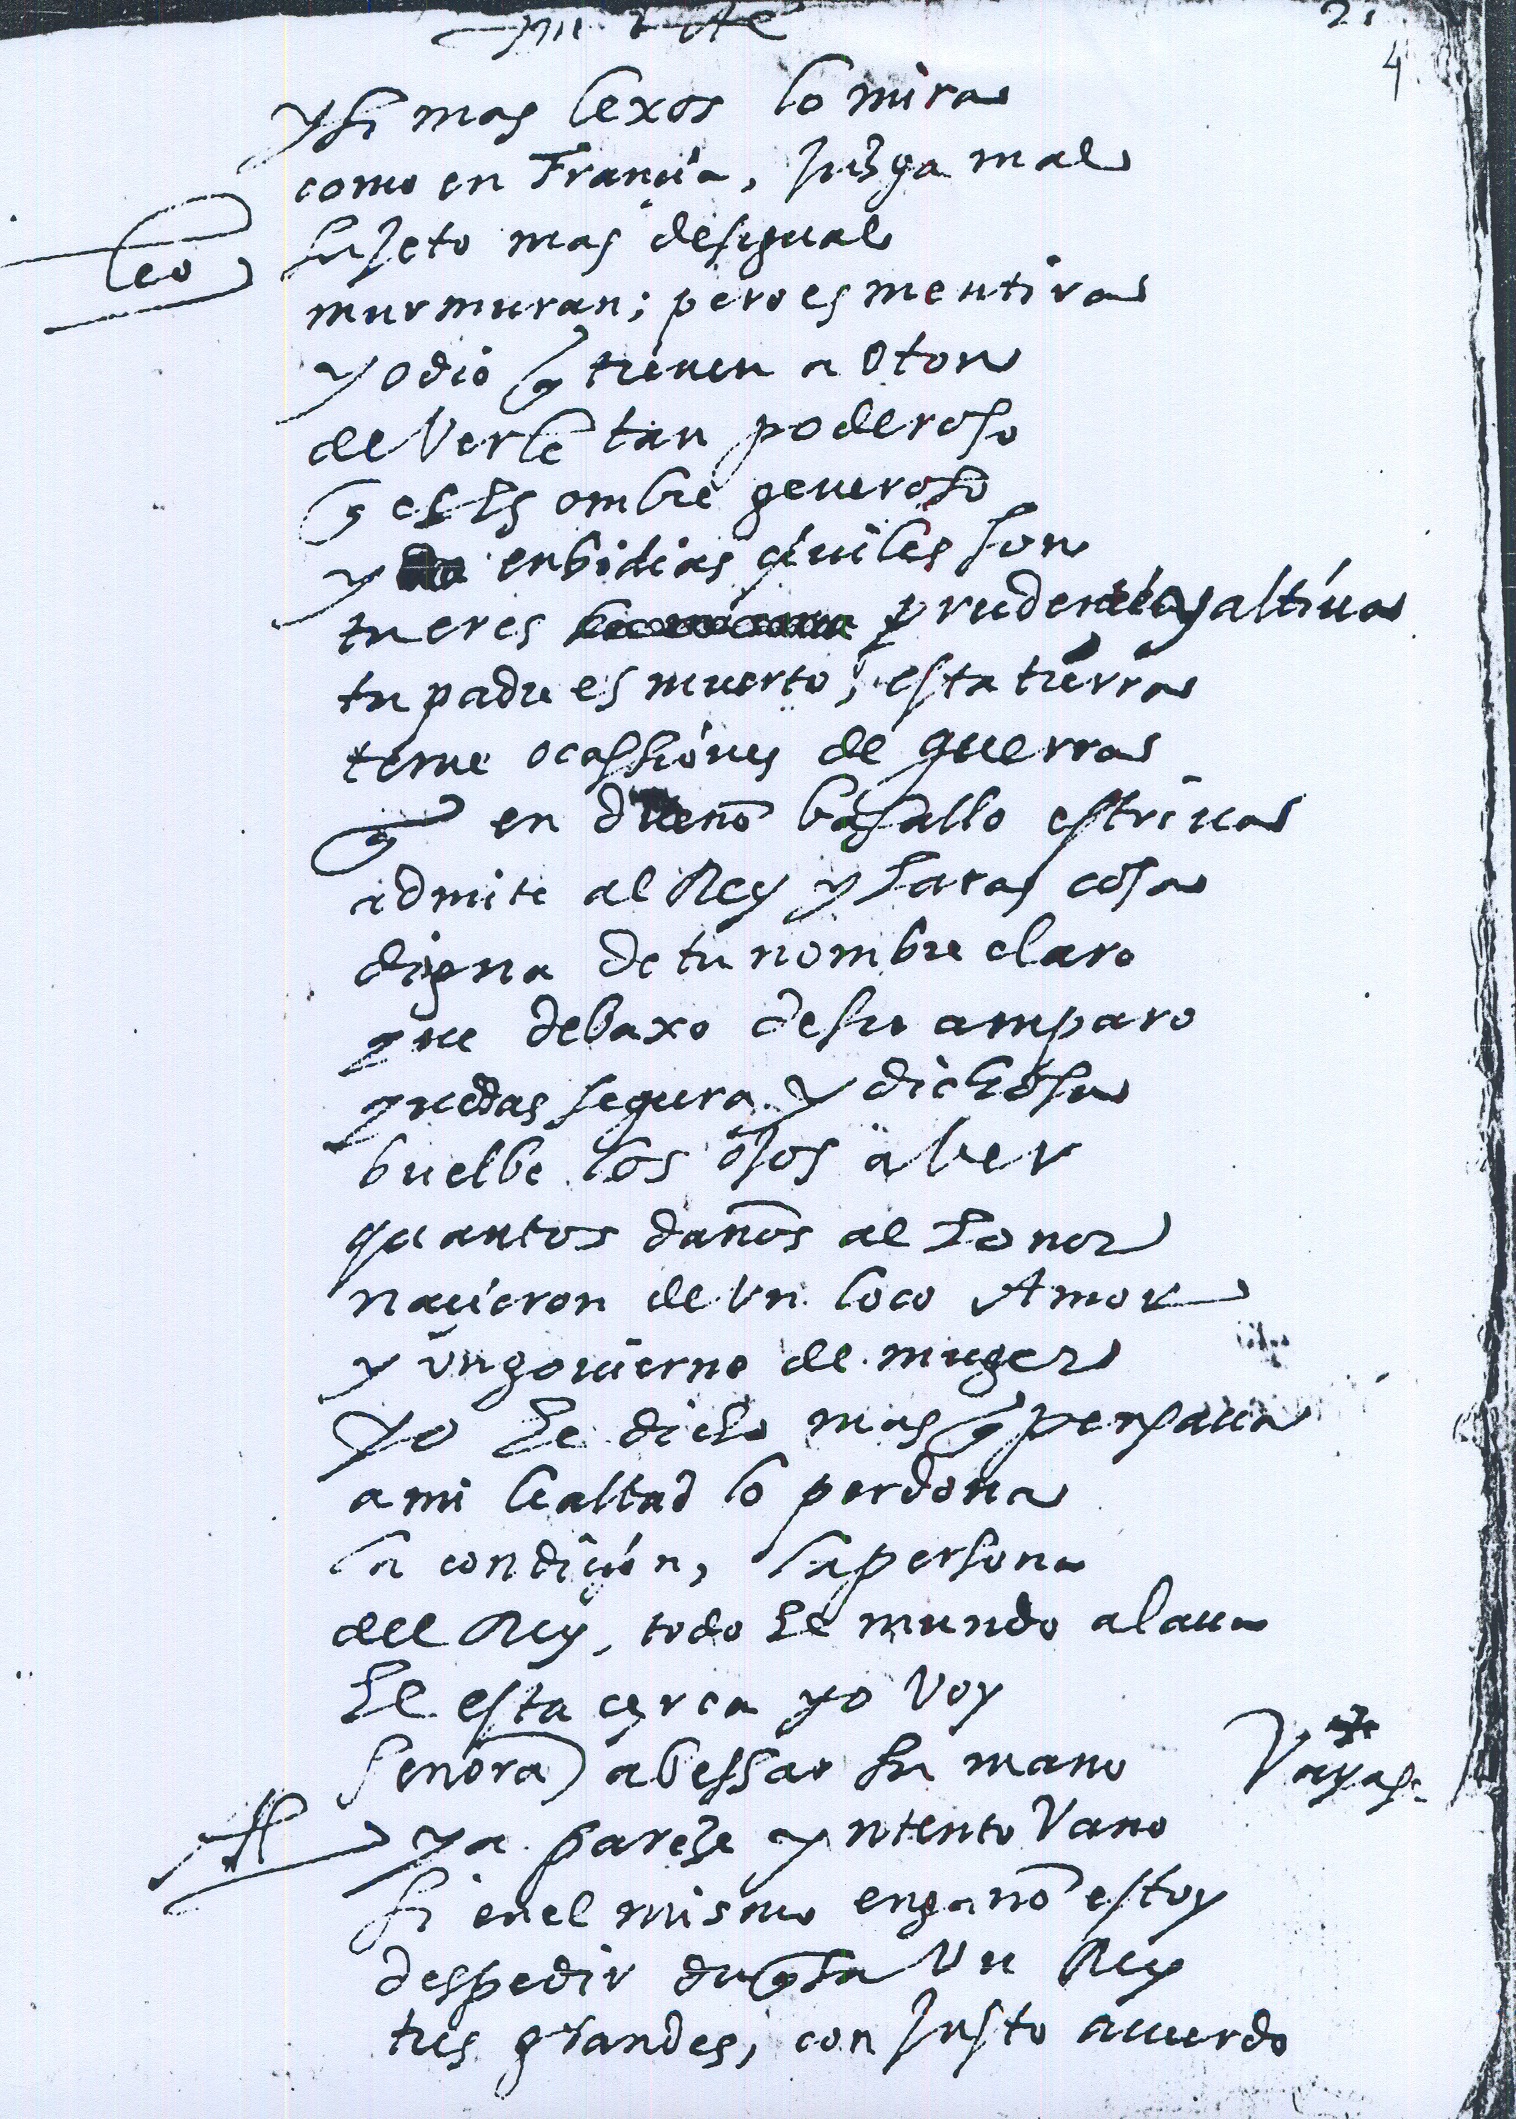 21
4
y si mas lexos lo mira
como en Francia, Juzga mal
Leo sujeto mas desigual
murmuran; pero es mentira
y odio q tienen a Oton
de verle tan poderoso
q el es ombre generoso
y enbidias çiuiles son
tu eres prudente y altiua
tu padre es muerto, esta tierra
teme ocassiones de guerra
q en dueño basallo estriua
admite al Rey y haras cosa
digna de tu nombre claro
que debaxo de su amparo
quedas segura y dichosa
buelbe los ojos a ver
quantos daños al honor
naçieron de vn loco Amor
y vn gouierno de muger
yo he dicho mas q pensaua
a mi lealtad lo perdona
la condiçion, la persona
del Rey, todo el mundo alaua
El esta çerca yo voy
señora) a bessar su mano
Vayase
ya pareze yntento vano
si en el mismo engaño estoy
despedir duquesa vn Rey
tus grandes, con Justo acuerdo